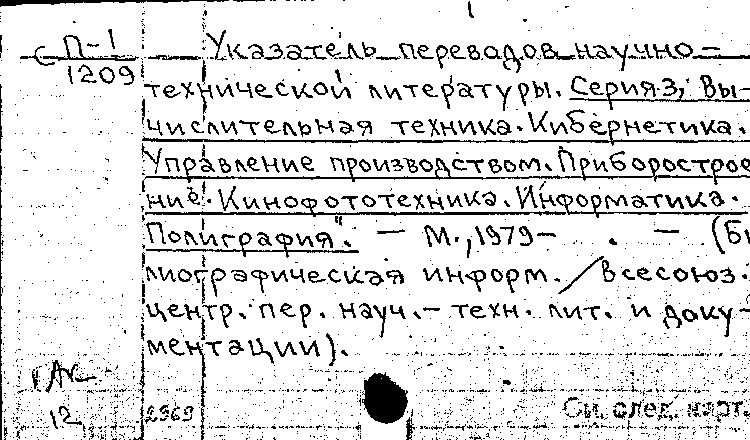 С П-1
1209
Указатель переводов научно-
технической литературы. Серия 3, Вы-
числительная техника. Кибернетика.
Управление производством. Приборострое
ние. Кинофототехника. Информатика.
Полиграфия". — М., 1979 — . — (Би
лиографическая информ. / Всесоюз.
центр. пер. науч.- техн. лит. и доку-
ментации).
12 2369
См. след. карт.